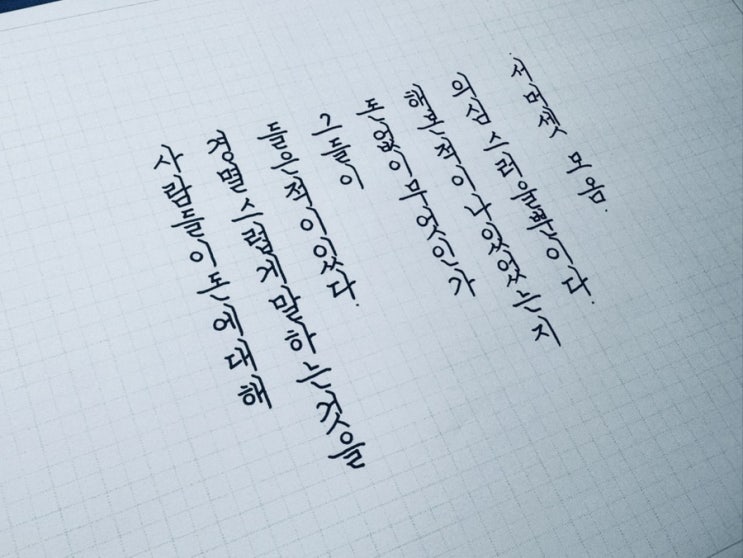 사람들이돈에대해
경멸스럽게말하는것을
들은적이있다.
그들이
돈없이무엇인가
해본적이나있었는지
의심스러울뿐이다.
서머셋 모옴.